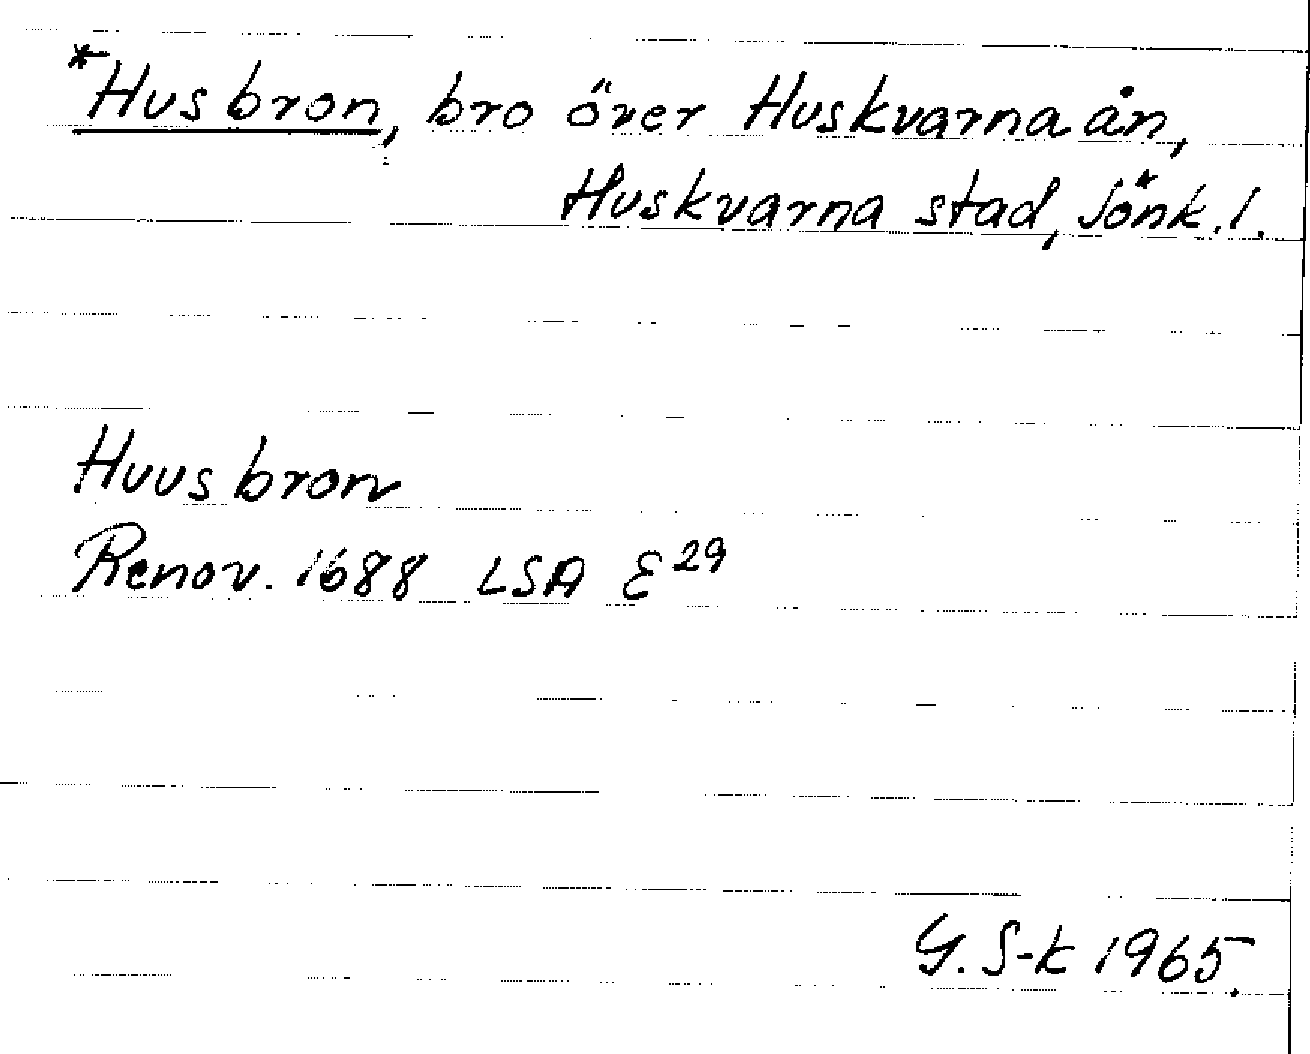 *Husbron, bro över Huskvarnaån,
Huskvarna stad, Jönk. l.
Huusbron
Renov. 1688 LSA E 29
G. S-k 1965.